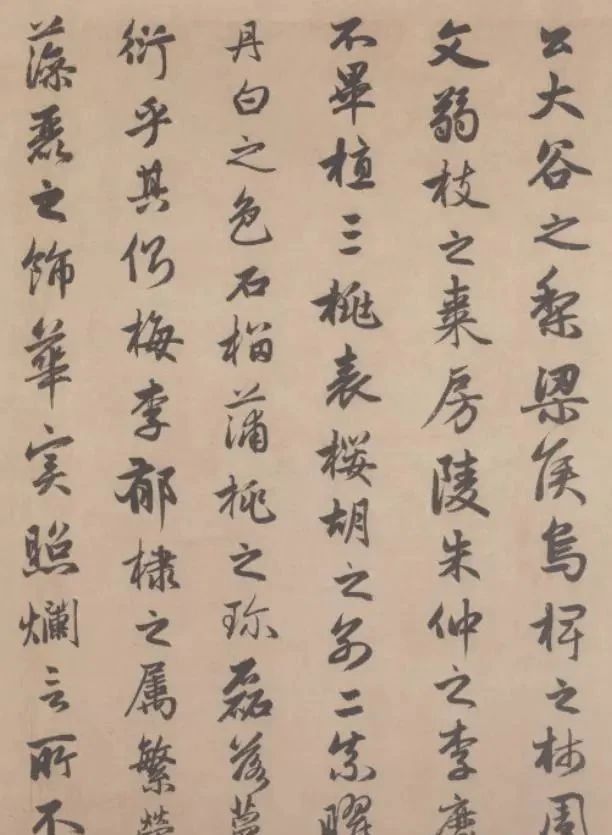 公大谷之梨梁侯烏椑之柿周
文弱枝之棗房陵朱仲之李靡
不畢植三桃表櫻胡之別二柰曜
丹白之色石榴蒲桃之珍磊落蔓
衍乎其側梅李郁棣之属繁榮
藻麗之飾華實照爛言所不